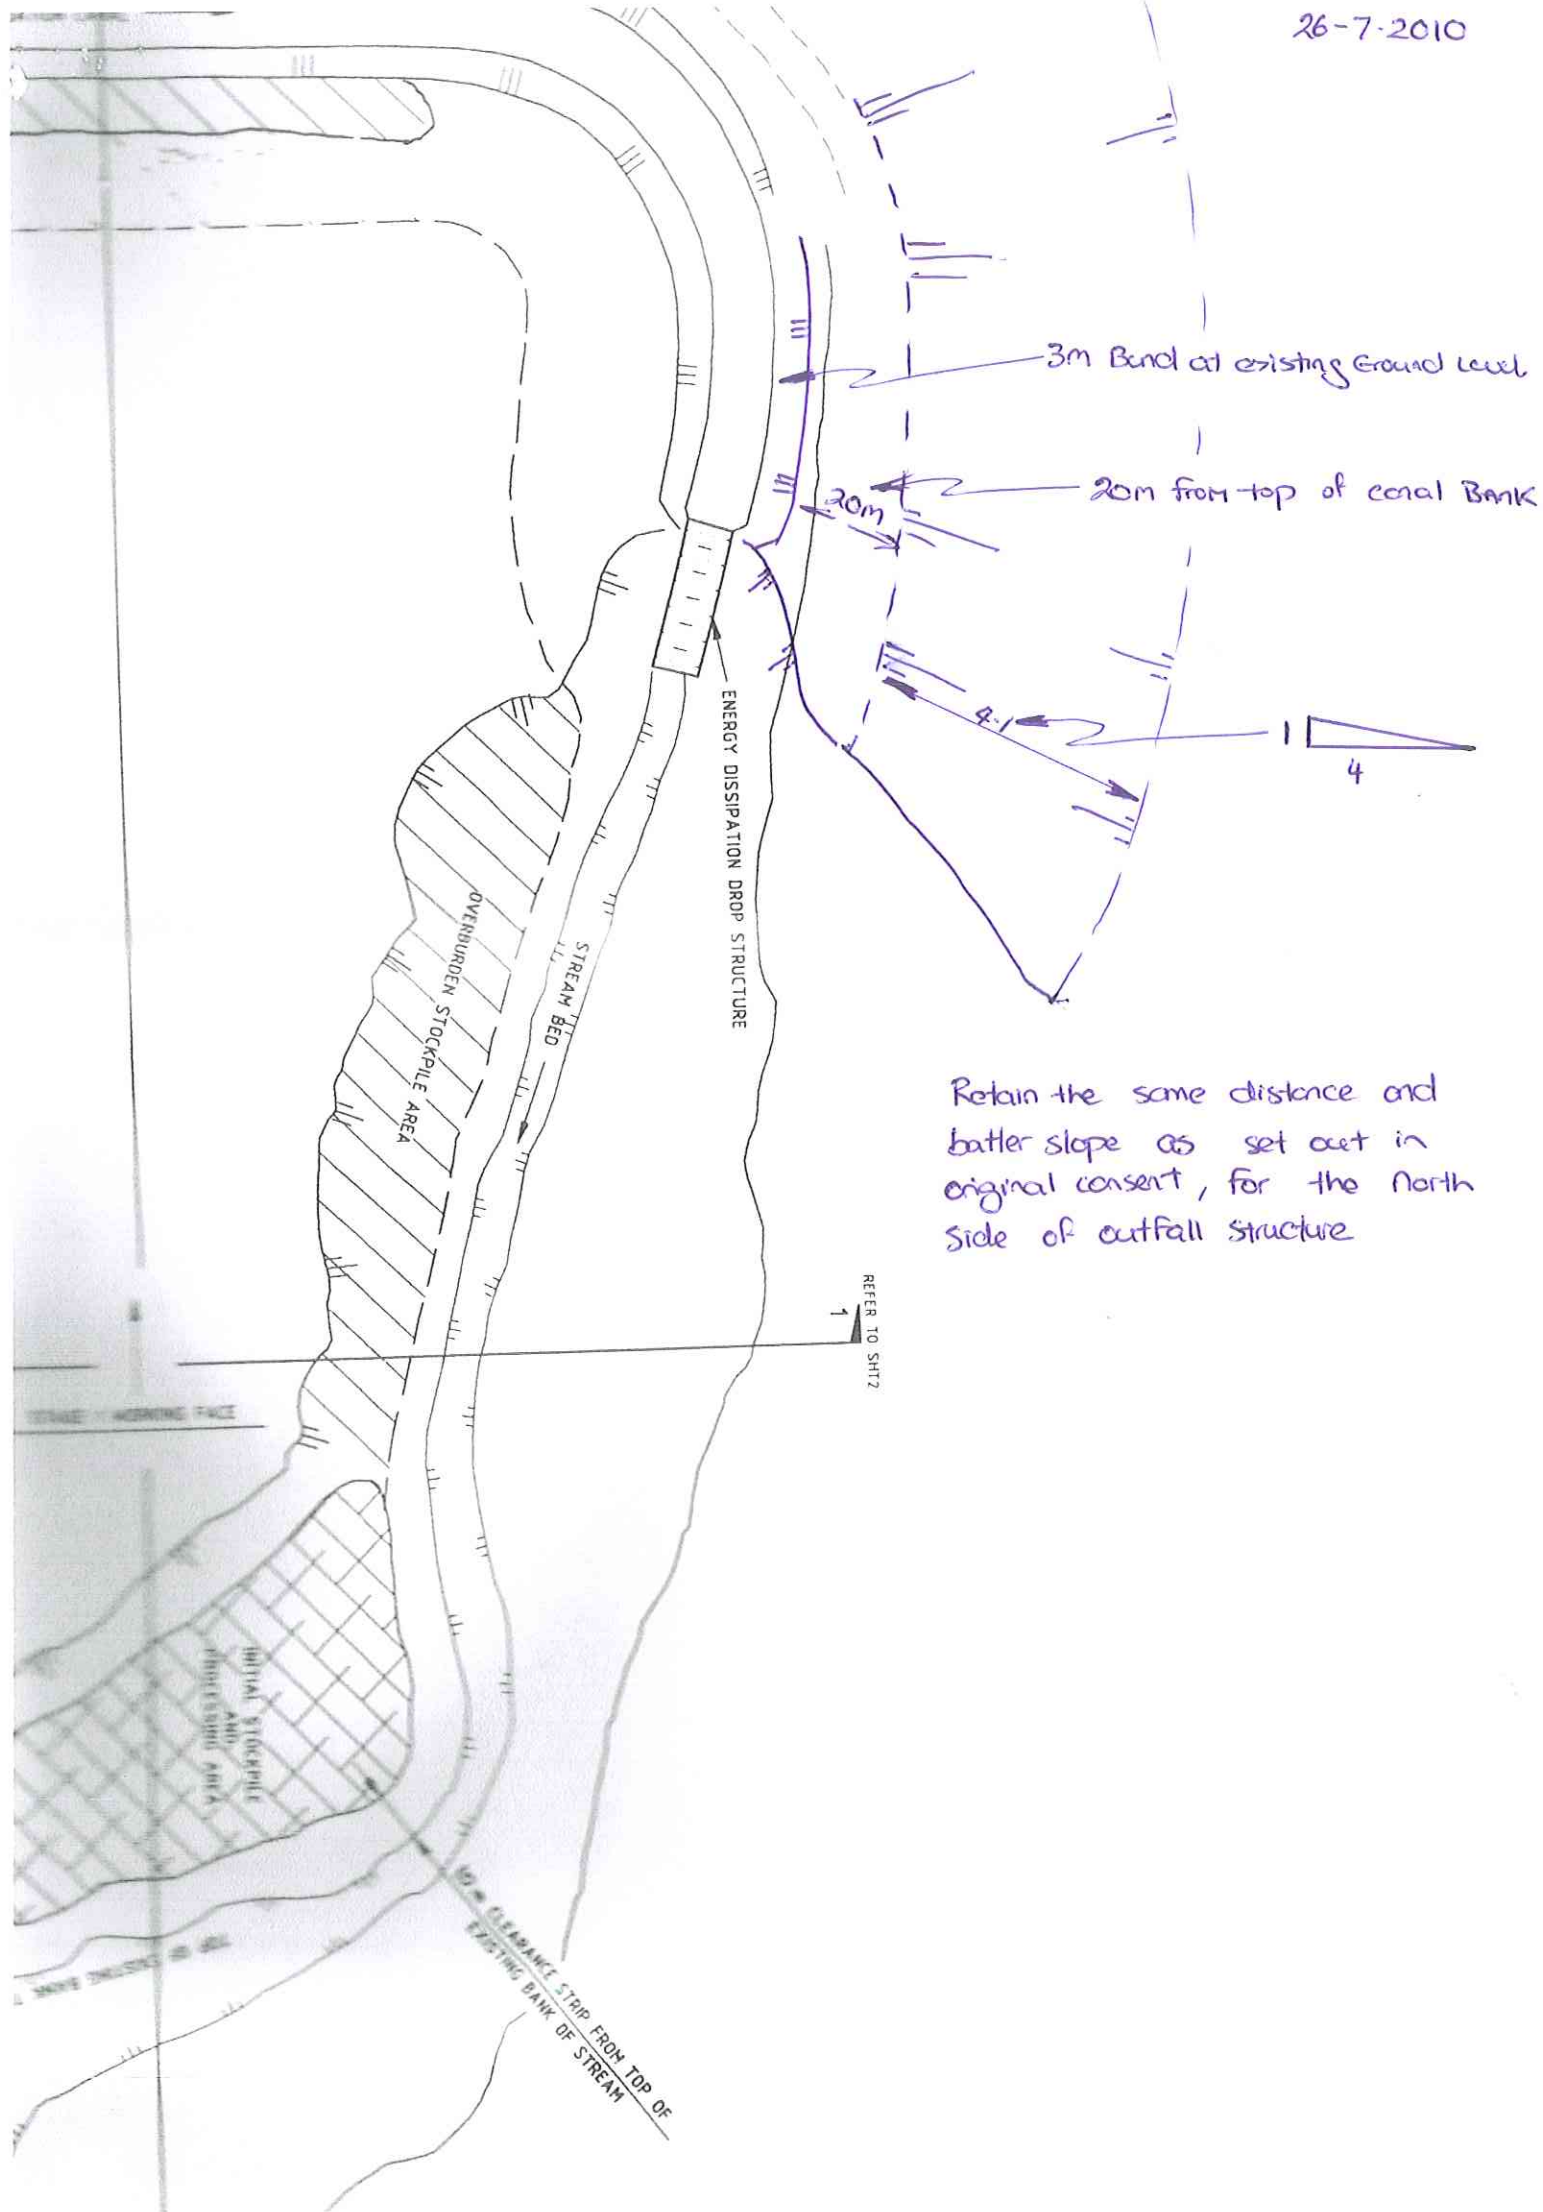 26-7-2010
3m Bund at existing Ground Level
20m from top of canal BANK
20m
4-1
1
4
ENERGY DISSIPATION DROP STRUCTURE
OVERBURDEN STOCKPILE AREA
STREAM BED
Retain the same distance and
batter slope as set out in
original consent, for the North
Side of outfall structure
1
REFER TO SHT2
WORKING FACE
INITIAL STOCKPILE
AND
PROCESSING AREA
CLEARANCE STRIP FROM TOP OF
EXISTING BANK OF STREAM
TOP OF EXISTING BANK